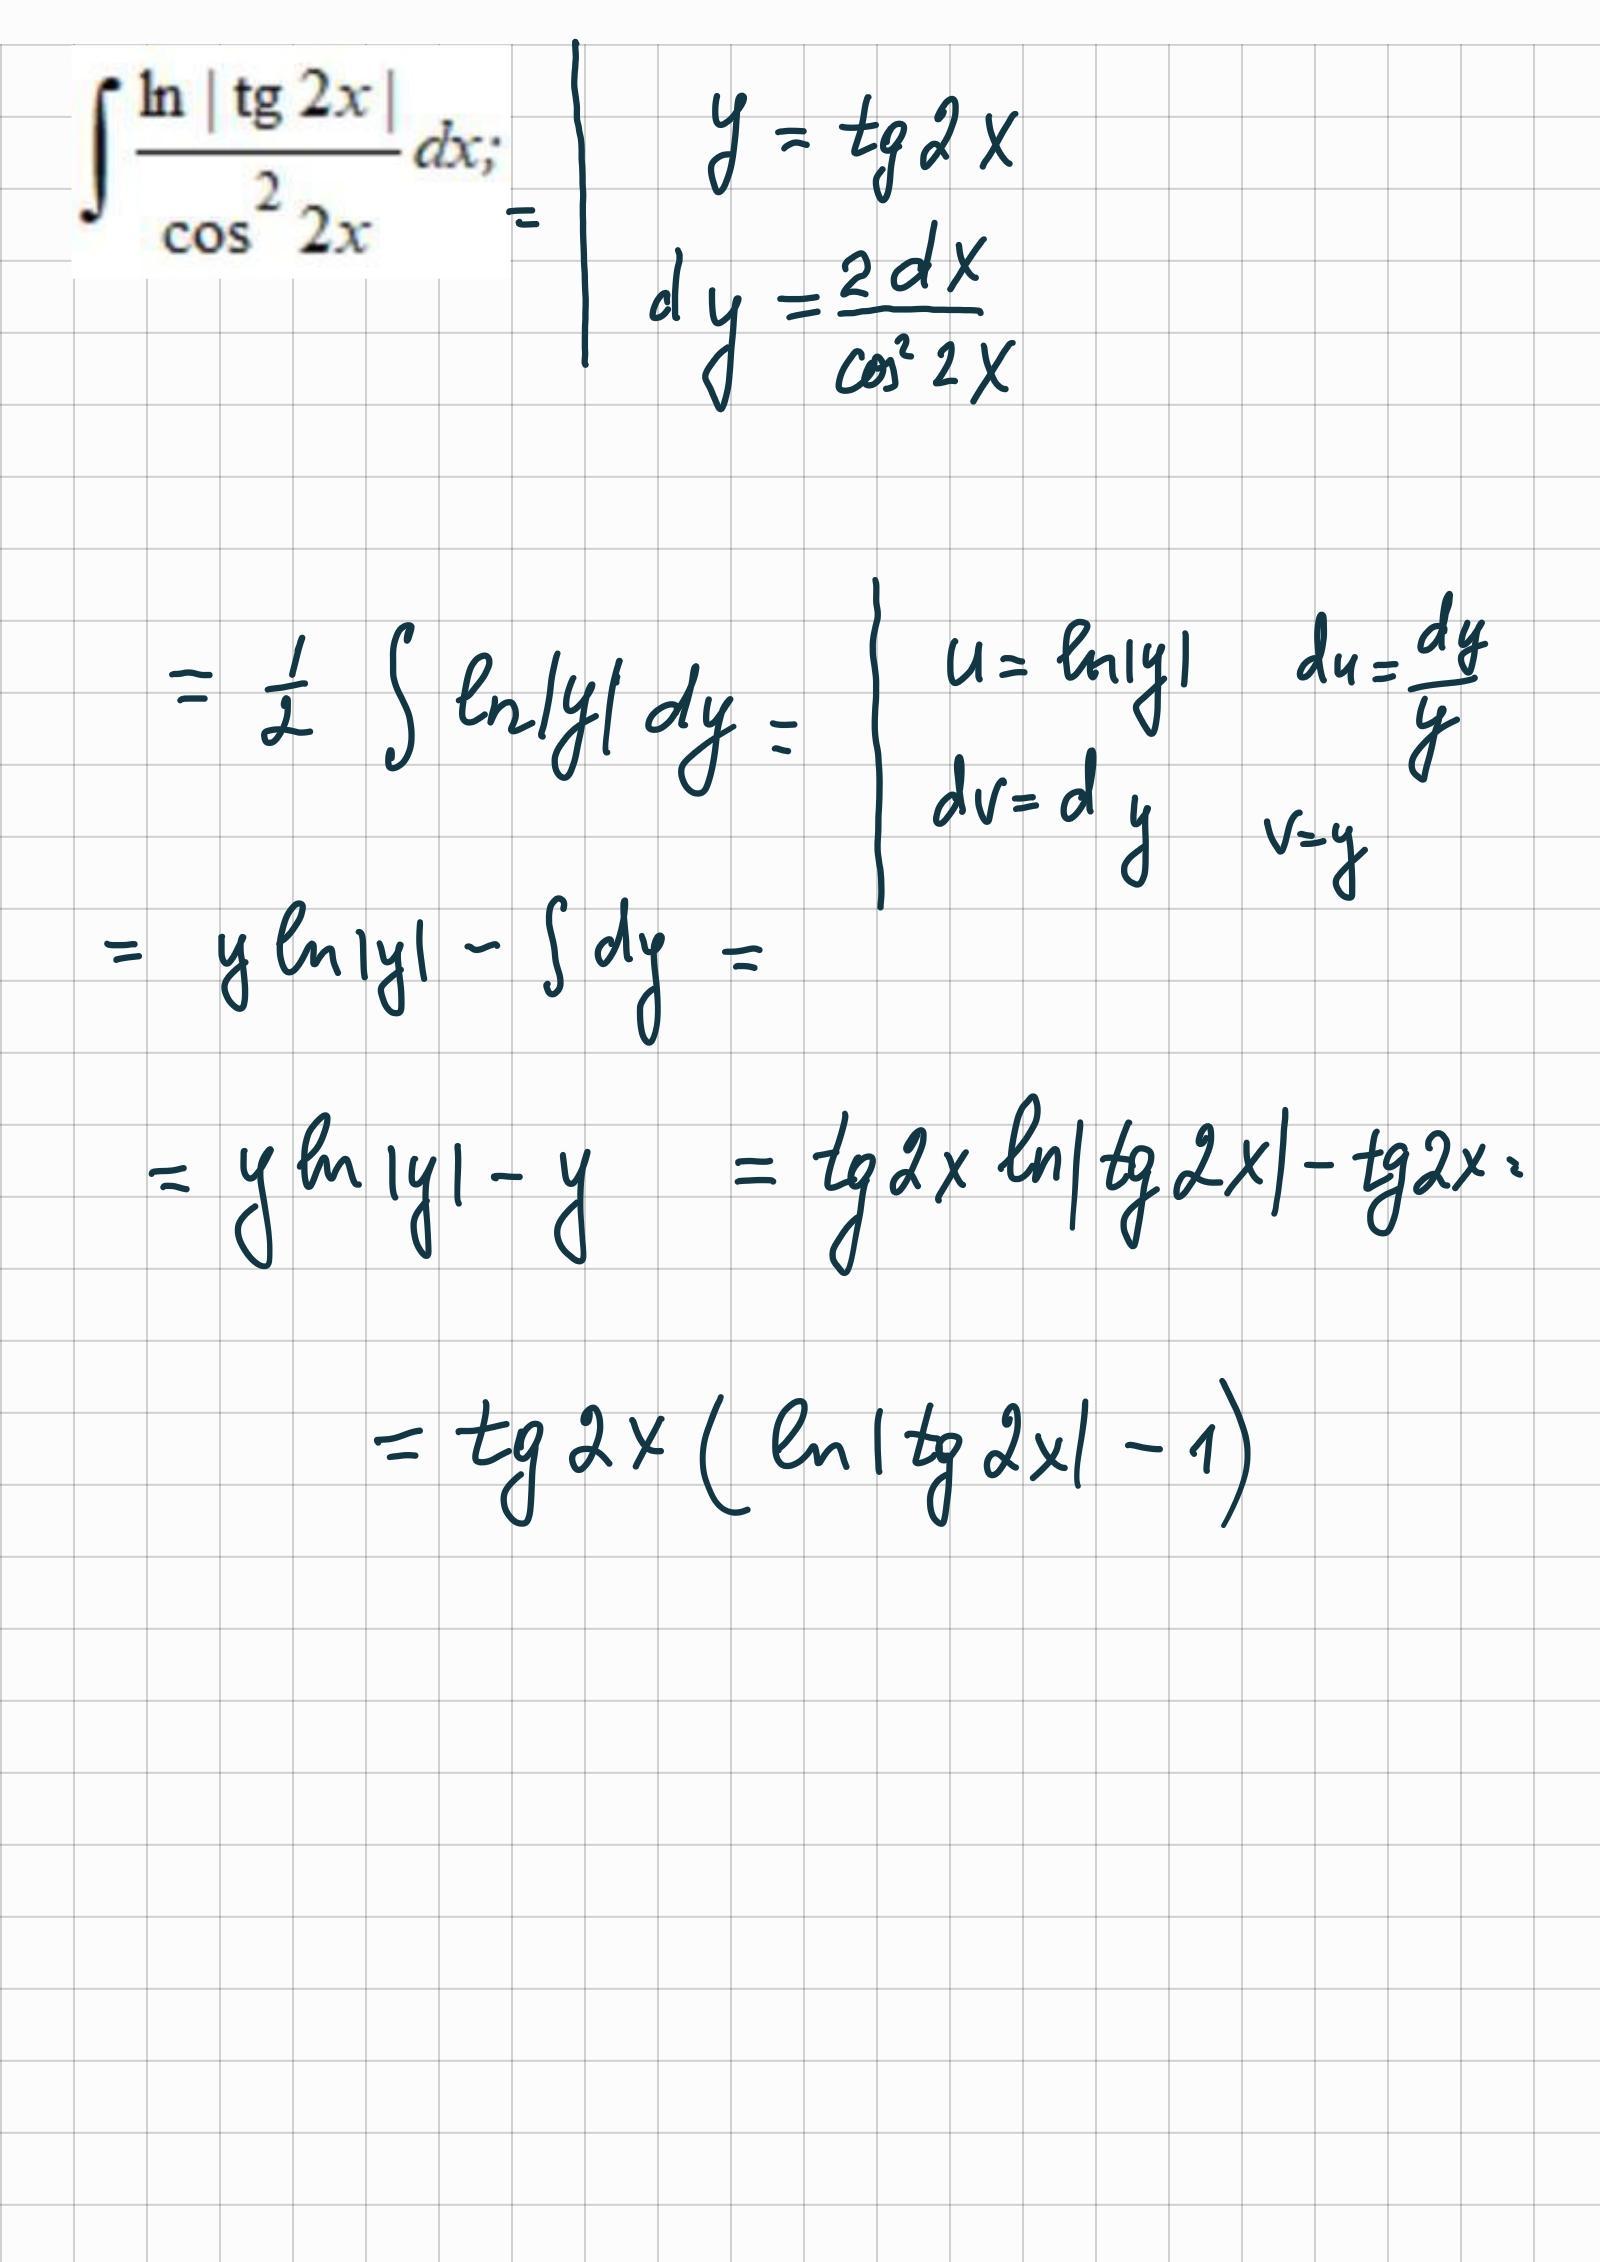 ∫ ln | tg 2x | / cos² 2x dx; = | y = tg 2x
dy = 2 dx / cos² 2x
= 1/2 ∫ ln|y| dy = | u = ln|y| du = dy/y
dv = dy v = y
= y ln|y| - ∫ dy =
= y ln|y| - y = tg 2x ln|tg 2x| - tg 2x =
= tg 2x ( ln|tg 2x| - 1 )